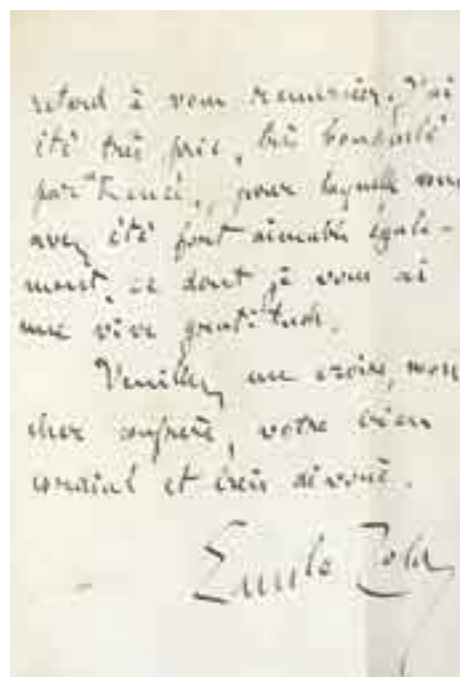 retard à vous remercier. J'ai
été très pris, très bousculé
par "Renée", pour laquelle vous
avez été fort aimable égale-
ment, ce dont je vous ai
une vive gratitude.
Veuillez me croire, mon
cher confrère, votre bien
cordial et bien dévoué.
Emile Zola